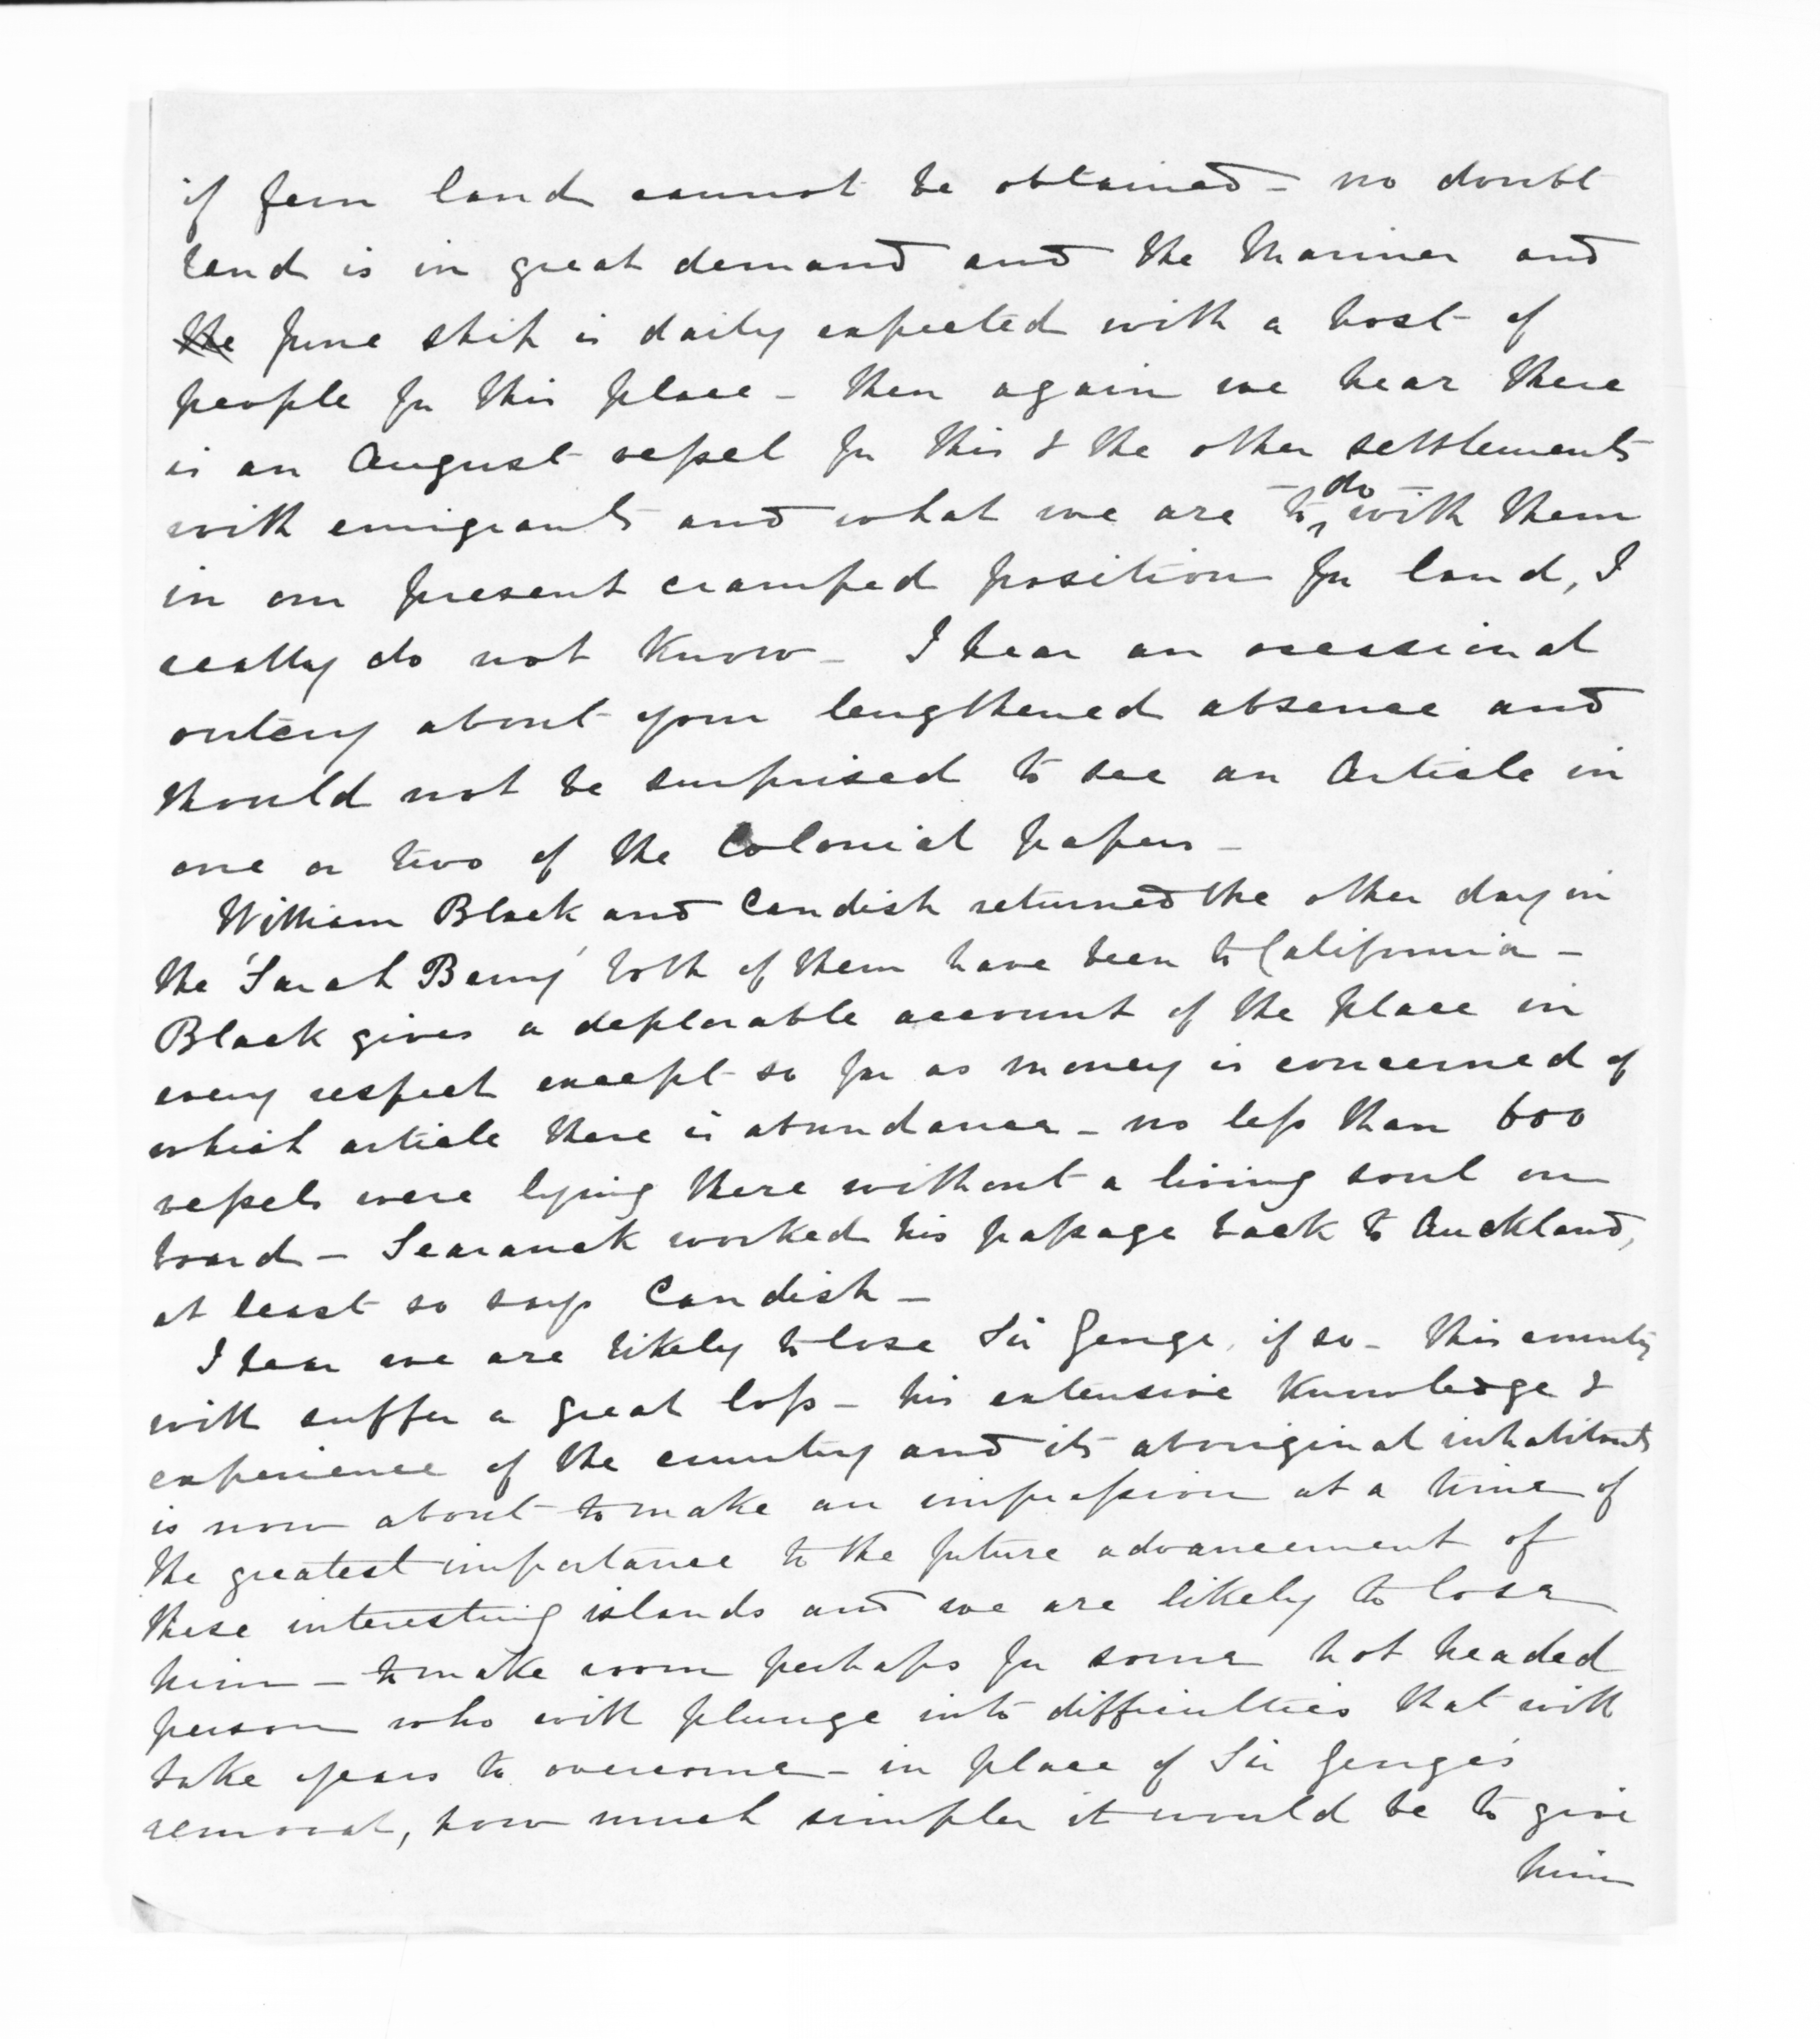 if fern land cannot be obtained - no doubt
land is in great demand and the Mariner and
the June ship is daily expected with a host of
people for this place - then again we hear there
is an August vessel for this & the other settlements
with emigrants and what we are to do with them
in our present cramped position for land, I
really do not know - I hear an occasional
outcry about your lengthened absence and
should not be surprised to see an Article in
one or two of the Colonial papers -
William Black and Candish returned the other day in
the 'Sarah Berry' both of them have been to California -
Black gives a deplorable account of the place in
every respect except so far as money is concerned of
which article there is abundance - no less than 600
vessels were lying there without a living soul on
board - Searanck worked his passage back to Auckland,
at least so says Candish -
I hear we are likely to lose Sir George, if so - this country
will suffer a great loss - his extensive knowledge &
experience of the country and its aboriginal inhabitants
is now about to make an impression at a time of
the greatest importance to the future advancement of
these interesting islands and we are likely to lose
him - to make room perhaps for some hot headed
person who will plunge into difficulties that will
take years to overcome - in place of Sir George's
removal, how much simpler it would be to give
him